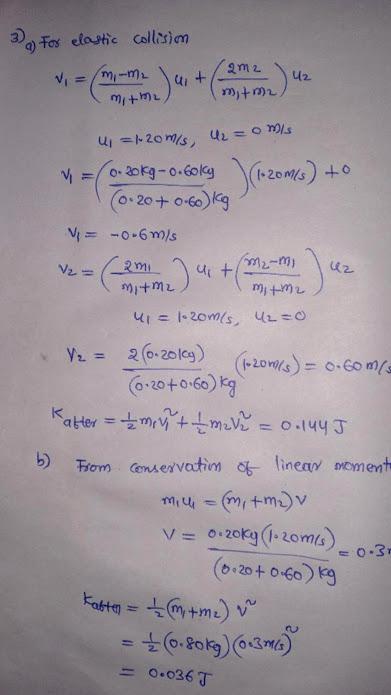 3) a) For elastic collision
V₁ = ((m₁-m₂)/(m₁+m₂)) u₁ + ((2m₂)/(m₁+m₂)) u₂
u₁ = 1.20 m/s, u₂ = 0 m/s
V₁ = ((0.20kg-0.60kg)/((0.20+0.60)kg)) (1.20m/s) + 0
V₁ = -0.6 m/s
V₂ = ((2m₁)/(m₁+m₂)) u₁ + ((m₂-m₁)/(m₁+m₂)) u₂
u₁ = 1.20m/s, u₂ = 0
V₂ = (2(0.20kg))/((0.20+0.60)kg) (1.20m/s) = 0.60 m/s
Kafter = ½ m₁v₁² + ½ m₂v₂² = 0.144 J
b) From conservation of linear moment
m₁u₁ = (m₁+m₂) V
V = (0.20kg (1.20m/s))/((0.20+0.60) kg) = 0.3
Kafter = ½ (m₁+m₂) v²
= ½ (0.80kg) (0.3m/s)²
= 0.036 J